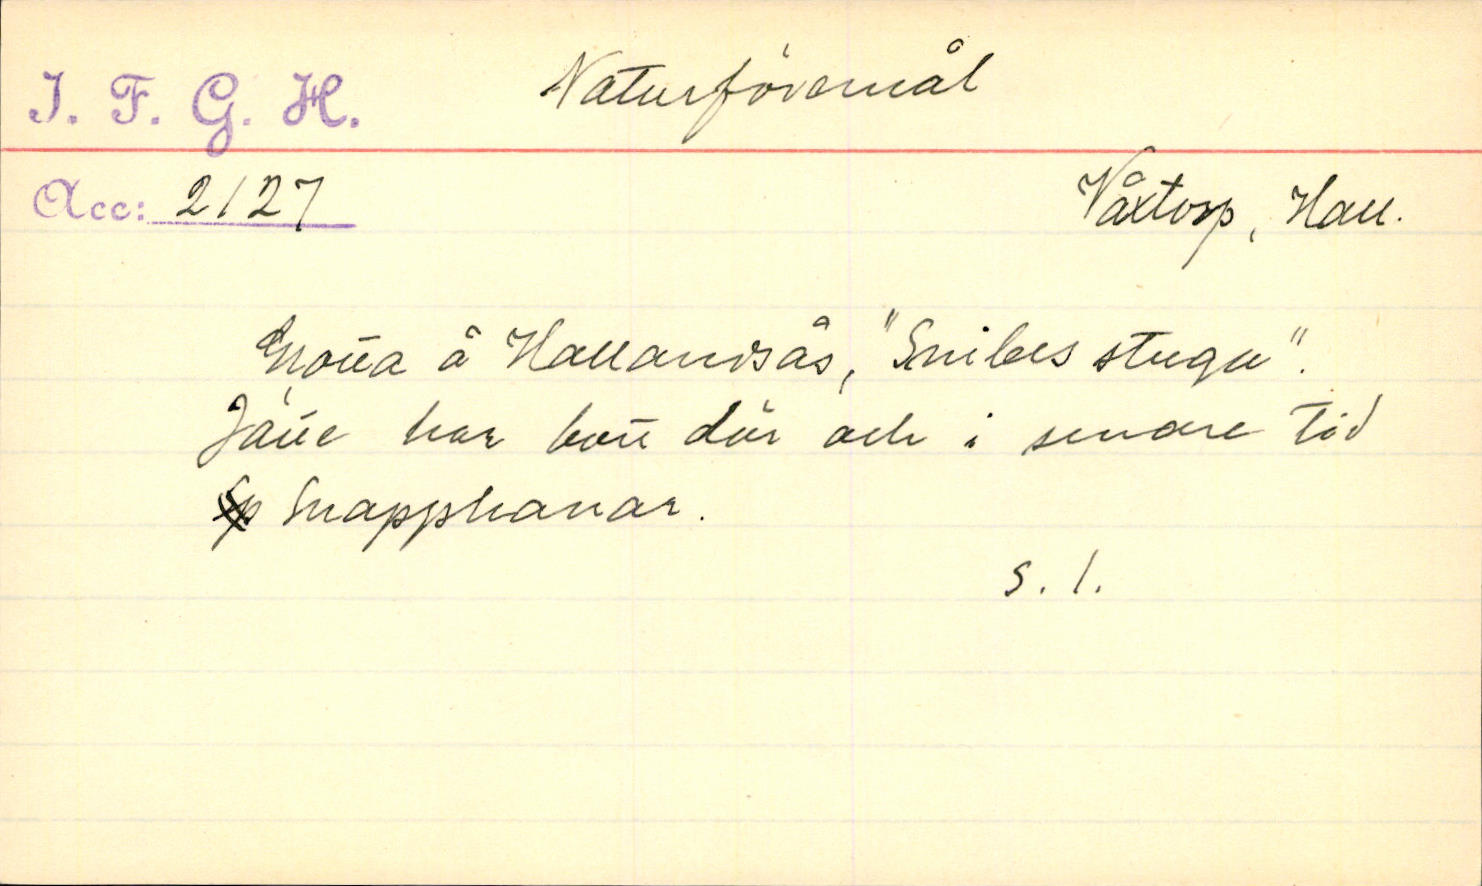 I. F. G. H.
Naturföremål
Acc: 2127
Våxtorp, Hall.
Grotta å Hallandsås, "Snibes stugu".
Jätte har bott där och i senare tid
Snapphanar.
S. 1.